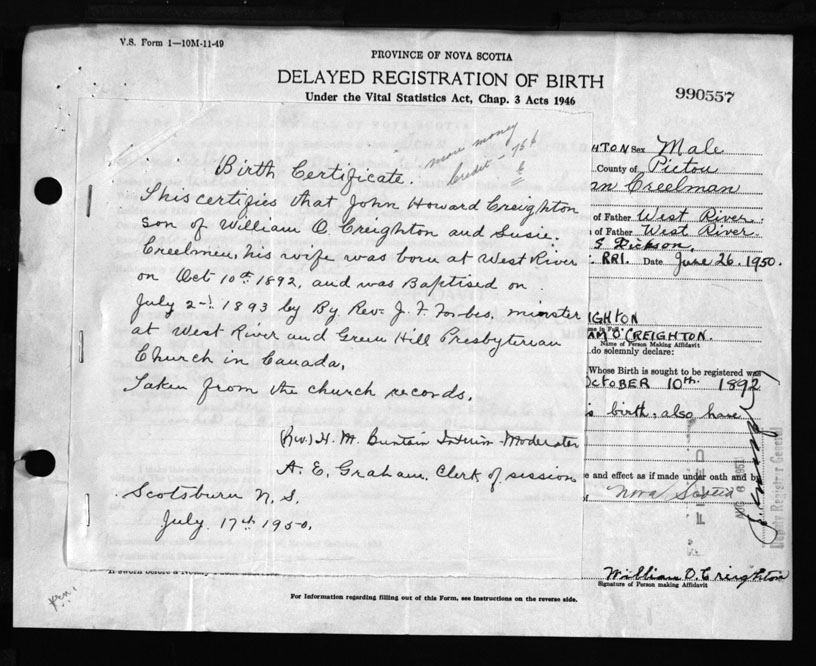 V.S. Form 1—10M-11-49
PROVINCE OF NOVA SCOTIA
DELAYED REGISTRATION OF BIRTH
Under the Vital Statistics Act, Chap. 3 Acts 1946
990557
more money
Credit - 75¢
Birth Certificate.
This certifies that John Howard Creighton
son of William O. Creighton and Susie.
Creelmen, his wife was born at West River
on Oct 10th 1892, and was Baptised on
July 2nd 1893 by By Rev. J. F. Forbes, minister
at West River and Green Hill Presbyterian
Church in Canada,
Taken from the church records.
(Rev.) H. M. Buntain Interim-Moderator
A. E. Graham. Clerk of session
Scotsburn N. S.
July 17th 1950.
HTON Sex Male
County of Pictou
an Creelman
of Father West River.
of Father West River.
S. Dickson.
RR1. Date June 26. 1950.
IGHTON
AM O CREIGHTON.
Name of Person Making Affidavit
do solemnly declare:
Whose Birth is sought to be registered was
OCTOBER 10th. 1892
s birth, also have
e and effect as if made under oath and by
of Nova Scotia
FILED
AUG 8 1951
Deputy Registrar General
William O. Creighton
Signature of Person making Affidavit
For Information regarding filling out of this Form, see instructions on the reverse side.